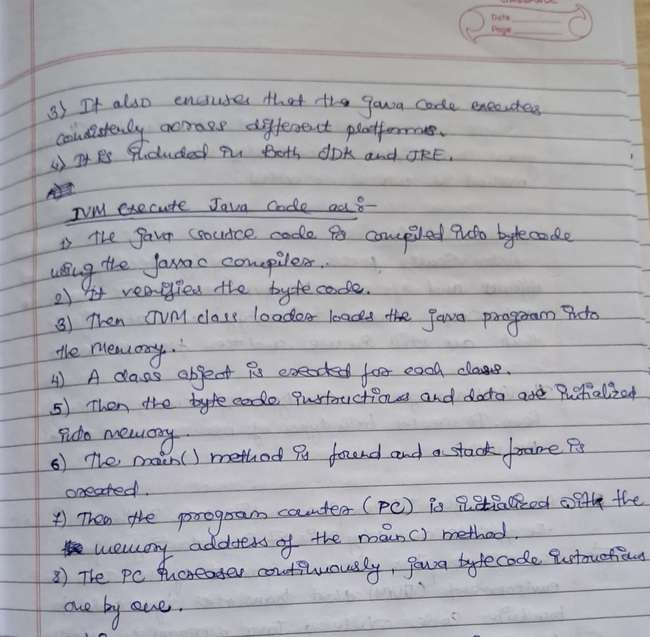 Date
Page
3) It also ensures that the java code executes
consistenly across different platforms.
4) It is included in both JDK and JRE.
JVM execute Java code as:-
1) The java source code is compiled into bytecode
using the javac compiler.
2) It verifies the bytecode.
3) Then JVM class loader loads the java program into
the memory.
4) A class object is created for each class.
5) Then the bytecode instructions and data are initialized
into memory.
6) The main() method is found and a stack frame is
created.
7) Then the program counter (PC) is initialized with the
memory address of the main() method.
8) The PC increases continuously, java bytecode instructions
one by one.